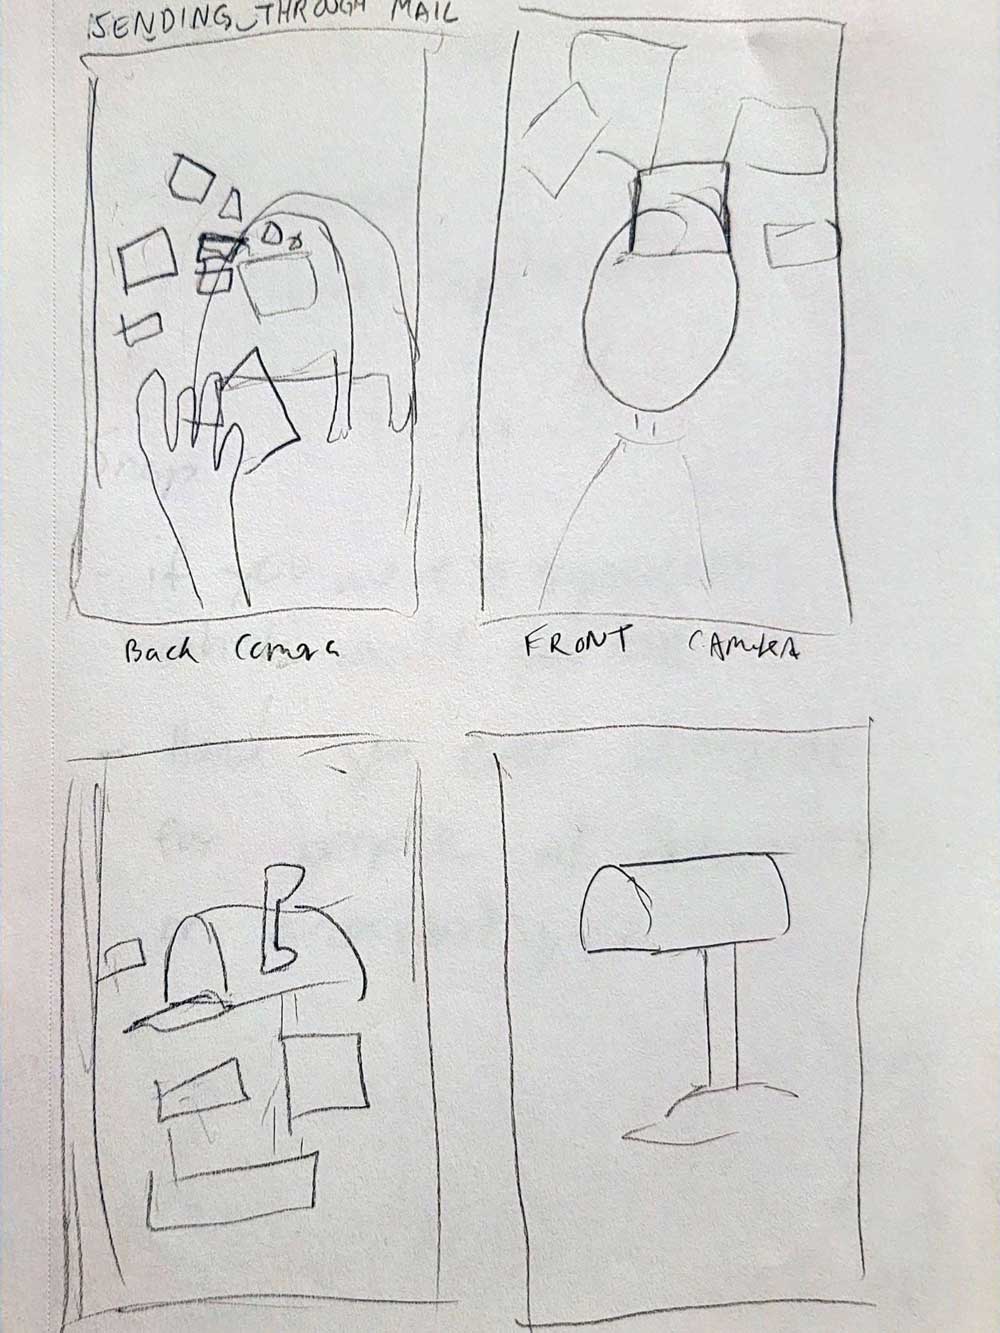 SENDING THROUGH MAIL
Back Camera
FRONT CAMERA